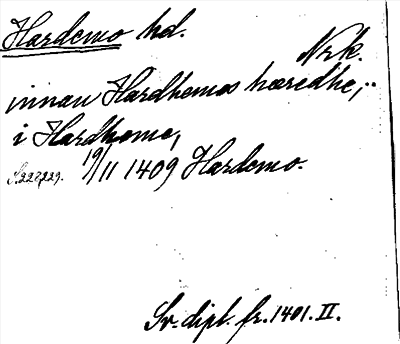 Hardemo hd.
Nrk.
innan Hardhemos hæredhe,..
i Hardhome,
S.228,229. 19/11 1409 Hardemo.
Sv. dipl. fr. 1401. II.